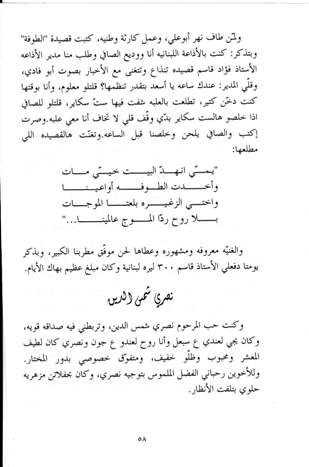 ولمّن طاف نهر أبوعلي، وعمل كارثة وطنيه، كتبت قصيدة "الطوفة"
وبتذكر: كنت بالأذاعة اللبنانيه أنا ووديع الصافي وطلب منا مدير الأذاعه
الأستاذ فؤاد قاسم قصيده تنذاع وتتغنى مع الأخبار بصوت أبو فادي،
وقلّي المدير: عندك ساعه يا أسعد بتقدر تنظمها؟ قلتلو معلوم، وأنا بوقتها
كنت دخّن كتير، تطلعت بالعلبه شفت فيها ستّ سكاير، قلتلو للصافي
اذا خلصو هالست سكاير بدّي وقّف قلي لا تخاف أنا معي علبه.وصرت
إكتب والصافي يلحن وخلصنا قبل الساعه.وتغنّت هالقصيده اللي
مطلعها:
"يمـّي انهـدّ البيـت خيـّي مـات
وأخـدت الطـوفـه أواعينـا
واختـي الزغيـره بلعتـا الموجـات
بـلا روح ردّا المـوج عالمينـا..."
والغنيّه معروفه ومشهوره وعطاها لحن موفّق مطربنا الكبير، وبذكر
يومتا دفعلي الأستاذ قاسم ٣٠٠ ليره لبنانية وكان مبلغ عظيم بهاك الأيام.
نصري شمس الدين
وكنت حب المرحوم نصري شمس الدين، وتربطني فيه صداقه قويه،
وكان يجي لعندي ع سبعل وأنا روح لعندو ع جون ونصري كان لطيف
المعشر ومحبوب وظلّو خفيف، ومتفوّق خصوصي بدور المختار.
وللأخوين رحباني الفضل الملموس بتوجيه نصري، وكان بحفلاتن مزهريه
حلوي بتلفت الأنظار.
٥٨